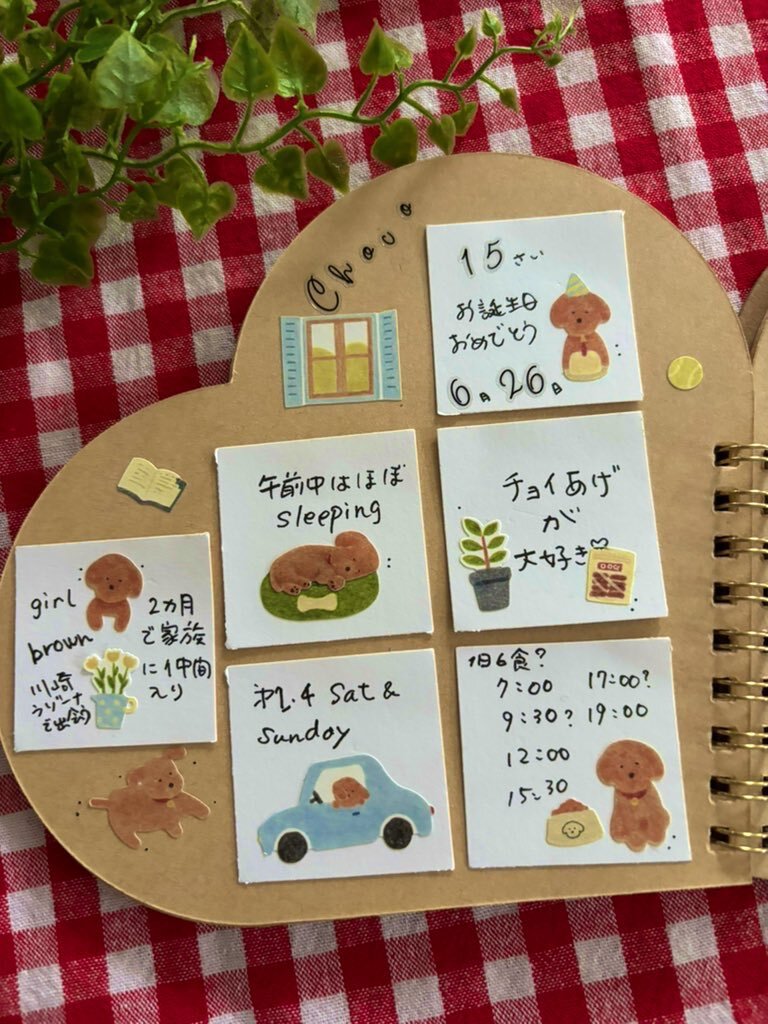 Choco
15さい
お誕生日
おめでとう
6月26日
午前中はほぼ
sleeping
チョイあげ
が
大好き♡
DOG
girl
brown
川崎
ラゾーナ
で出会う
2カ月
で家族
に仲間
入り
2.4 Sat &
Sunday
1日6食?
7:00
9:30?
12:00
15:30
17:00?
19:00